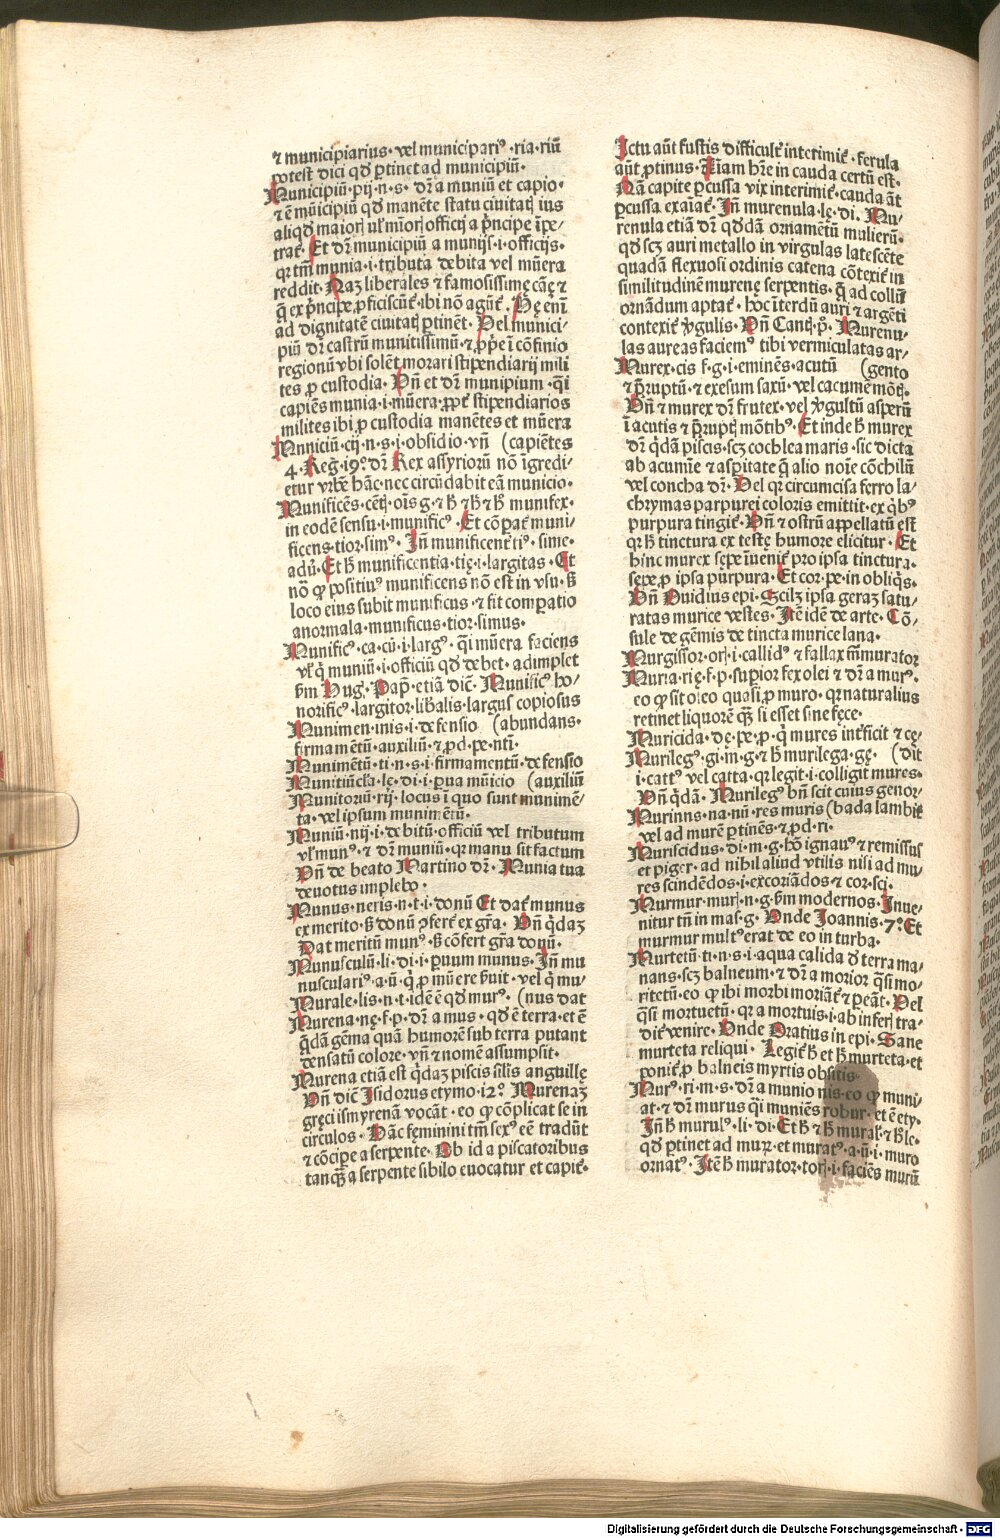 ⁊ municipiarius· vel municipariꝰ ·ria·riū
potest dici qď ꝑtinet ad municipiū·
Municipiū·pij·n·s· dr̄ a muniū et capio·
⁊ ē mūicipiū qď manēte statu ciuitatꝭ ius
aliqď maiorꝭ ul̓ mīorꝭ officij a pͥncipe īpe/
trat̄· Et dr̄ municipiū a munijs·i·officijs·
qꝛ tm̄ munia·i·tributa debita vel mūera
reddit· Naꝫ liberales ⁊ famosissime cāę ⁊
q̄ ex pͥncipe ꝓficiscūt̄·ibi nō agūt̄· Hę enī
ad dignitatē ciuitatꝭ ꝑtinēt· Vel munici/
piū dr̄ castrū munitissimū·⁊ ꝓpͥe ī cōfinio
regionū vbi solēt morari stipendiarij mili
tes ꝓ custodia· Vn̄ et dr̄ munipium·qͥi
capiēs munia·i·mūera·ꝓpt̄ stipendiarios
milites ibi ꝓ custodia manētes et mūera
Mniciū·cij·n·s·i·obsidio·vn̄ (capiētes
4·Reg·19ꝰ dr̄ Rex assyriorū nō īgredi/
etur vrbē hāc·nec circūdabit eā municio·
Munificēs·cētꝭ·oīs g·⁊ ħ ⁊ ħ ⁊ ħ munifex·
in eodē sensu·i·munificꝰ·Et cōpat̄ muni/
ficens·tior·simꝰ· Jn̄ munificent̄ tiꝰ·sime·
adū· Et ħ munificentia·tię·i·largitas· Et
nō ꝙ positiuꝰ munificens nō est in vsu·ß
loco eius subit munificus·⁊ fit comꝑatio
anormala·munificus·tior·simus·
Munificꝰ·ca·cū·i·largꝰ·qͥi mūera faciens
vl̓ qͥ muniū·i·officiū qď debet·adimplet
ẜm Hug· Pap̄·etiā dic̄· Munificꝰ ho/
norificꝰ·largitor·lib̓alis·largus copiosus
Munimen·inis·i·defensio (abundans·
firmamētū·auxiliū·⁊ ꝓd·pe·nti·
Munimētū·ti·n·s·i·firmamentū·defensio
Munitiūcl̓a·lę·di·i·ꝑua mūicio (auxiliū
Munitoriū·rij·locus ī quo sunt munimē/
ta·vel ipsum munimētū·
Muniū·nij·i·debitū·officiū vel tributum
vl̓ munꝰ·⁊ dr̄ muniū·qꝛ manu sit factum
Vn̄ de beato Martino dr̄· Munia tua
deuotus implebo·
Munus·neris·n·t·i·donū Et dat̄ munus
ex merito·ß donū ɔfert̄ ex gr̄a· Vn̄ qͥdaꝫ
Dat meritū munꝰ·ß cōfert gr̄a donū·
Munusculū·li·di·i·ꝑuum munus· Jn̄ mu
nusculariꝰ·a·ū·qͥ ꝓ mūere ßuit·vel qͥ mu/
Murale·lis·n·t·idē ē qď murꝰ· (nus dat
Murena·nę·f·p·dr̄ a mus·qď ē terra·et ē
qͥdā gēma quā humorē sub terra putant
densatū colore·vn̄ ⁊ nomē assumpsit·
Murena etiā est qͥdaꝫ piscis silis anguillę
Vn̄ dic̄ Jsidorus etymo·12ꝰ· Murenaꝫ
gręci ismyrenā vocāt·eo ꝙ cōplicat se in
circulos· Hāc fęminini tm̄ sexꝰ eē tradūt
⁊ cōcipe a serpente· Ob id a piscatoribus
tanq̄ꝫ a serpente sibilo euocatur et capit̄·
Jctu aūt fustis difficult̄ interimit̄·ferula
aūt ꝓtinus· Animam hr̄e in cauda certū est·
Nā capite ꝑcussa vix interimit̄·cauda āt
ꝑcussa exaīat̄· Jn̄ murenula·lę·di· Mu/
renula etiā dr̄ qďdā ornamētū mulierū·
qď scꝫ auri metallo in virgulas latescēte
quadā flexuosi ordinis catena cōtexit̄ in
similitudinē murenę serpentis· q̄ ad collū
ornādum aptat̄· hoc īterdū auri ⁊ argēti
contexit̄ v̓gulis· Vn̄ Cantꝭ·pͦ· Murenu/
las aureas faciemꝰ tibi vermiculatas ar/
Murex·cis·f·g·i·eminēs·acutū (gento
⁊ p̄ruptū·⁊ exesum saxū·vel cacumē mōtꝭ·
Vn̄ ⁊ murex dr̄ frutex·vel v̓gultū asperū
ī acutis ⁊ p̄ruptꝭ mōtibꝰ·Et inde ħ murex
dr̄ qͥdā piscis·scꝫ cochlea maris·sic dicta
ab acumīe ⁊ asꝑitate q̄ alio noīe cōchiliū
vel concha dr̄· Vel qꝛ circumcisa ferro la/
chrymas purpurei coloris emittit·ex qͥbꝰ
purpura tingit̄· Vn̄ ⁊ ostrū appellatū est
qꝛ ħ tinctura ex testę humore elicitur· Et
hinc murex sępe īuenit̄ pro ipsa tinctura·
sępe ꝓ ipsa purpura· Et cor·pe·in obliqͥs·
Vn̄ Ouidius epi· Scilꝫ ipsa geraꝫ satu/
ratas murice vestes· Jtē idē de arte· Cō/
sule de gēmis de tincta murice lana·
Murgissor·orꝭ·i·callidꝰ ⁊ fallax m̄murator
Muria·rię·f·p·suꝑior fex olei ⁊ dr̄ a murꝰ·
eo ꝙ sit oleo quasi ꝓ muro·qꝛ naturalius
retinet liquorē q̄ꝫ si esset sine fęce·
Muricida·dę·pe·p·qͥ mures int̓ficit ⁊ cę·
Murilegꝰ·gi·m·g·⁊ ħ murilega·gę· (dit
i·cattꝰ vel catta·qꝛ legit·i·colligit mures·
Vn̄ qͥdā· Murilegꝰ bn̄ scit cuius genor/
Murinns·na·nū·res muris (bada lambit
vel ad murē ꝑtinēs·⁊ ꝓd·ri·
Muriscidus·di·m·g·hō ignauꝰ ⁊ remissus
et piger·ad nihil aliud vtilis nisi ad mu/
res scindēdos·i·excoriādos·⁊ cor·sci·
Murmur·murꝭ·n·g·ẜm modernos· Jnue/
nitur tn̄ in mas·g· Vnde Joannis·7ꝰ· Et
murmur multꝰ erat de eo in turba·
Murtetū·ti·n·s·i·aqua calida ď terra ma/
nans·scꝫ balneum·⁊ dr̄ a morior qͥsi mo/
ritetū·eo ꝙ ibi morbi moriāt̄ ⁊ ꝑeāt̄· Vel
qͥsi mortuetū·qꝛ a mortuis·i·ab inferꝭ tra/
dit̄ venire· Vnde Oratius in epi· Sane
murteta reliqui· Legit̄ ħ et ħ murteta·et
ponit̄ ꝓ balneis myrtis obsitis·
Murꝰ·ri·m·s·dr̄ a munio nis·eo ꝙ muni/
at·⁊ dr̄ murus qͥi muniēs robur·et ē ety·
Jn̄ ħ murulꝰ·li·di· Et ħ ⁊ ħ mural̓·⁊ ħ le·
qď ꝑtinet ad murꝫ·et muratꝰ·a·ū·i·muro
ornatꝰ· Jtē ħ murator·torꝭ·i·faciēs murū
Digitalisierung gefördert durch die Deutsche Forschungsgemeinschaft · DFG